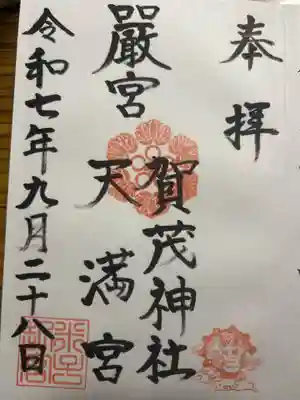 奉拝
賀茂神社
嚴宮
天満宮
令和七年九月二十八日